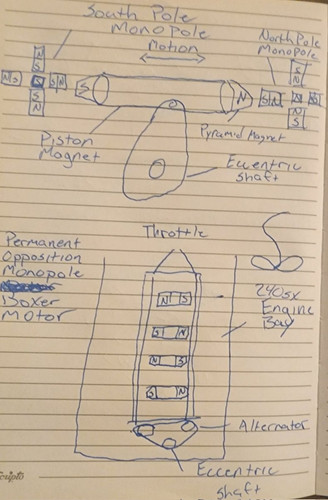 South Pole
Monopole
Motion
North Pole
Monopole
N
S
N S
S N
S
N
S
N
S N
S
N
N
S
Piston
Magnet
Pyramid Magnet
Eccentric
shaft
Throttle
Permanent
Opposition
Monopole
Boxer
Motor
240sx
Engine
Bay
N S
S N
N S
S N
Alternator
Eccentric
shaft
Scripto